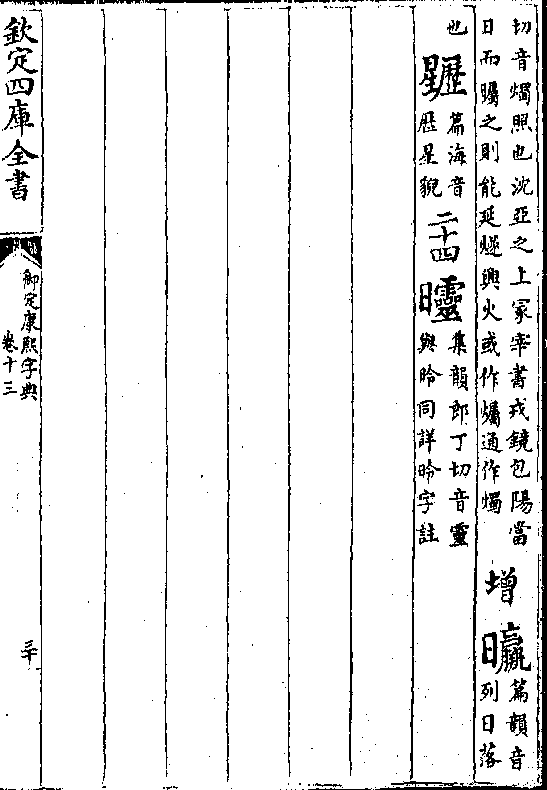 切音燭照也沈亞之上冢宰書戎鏡包陽當
日而曯之則能延燧興火或作爥通作燭
增
篇韻音
列日落
也
篇海音
歷星貌
二十四
集韻郎丁切音靈
與昤同詳昤字註
欽定四庫全書
御定康熙字典
卷十三
三十